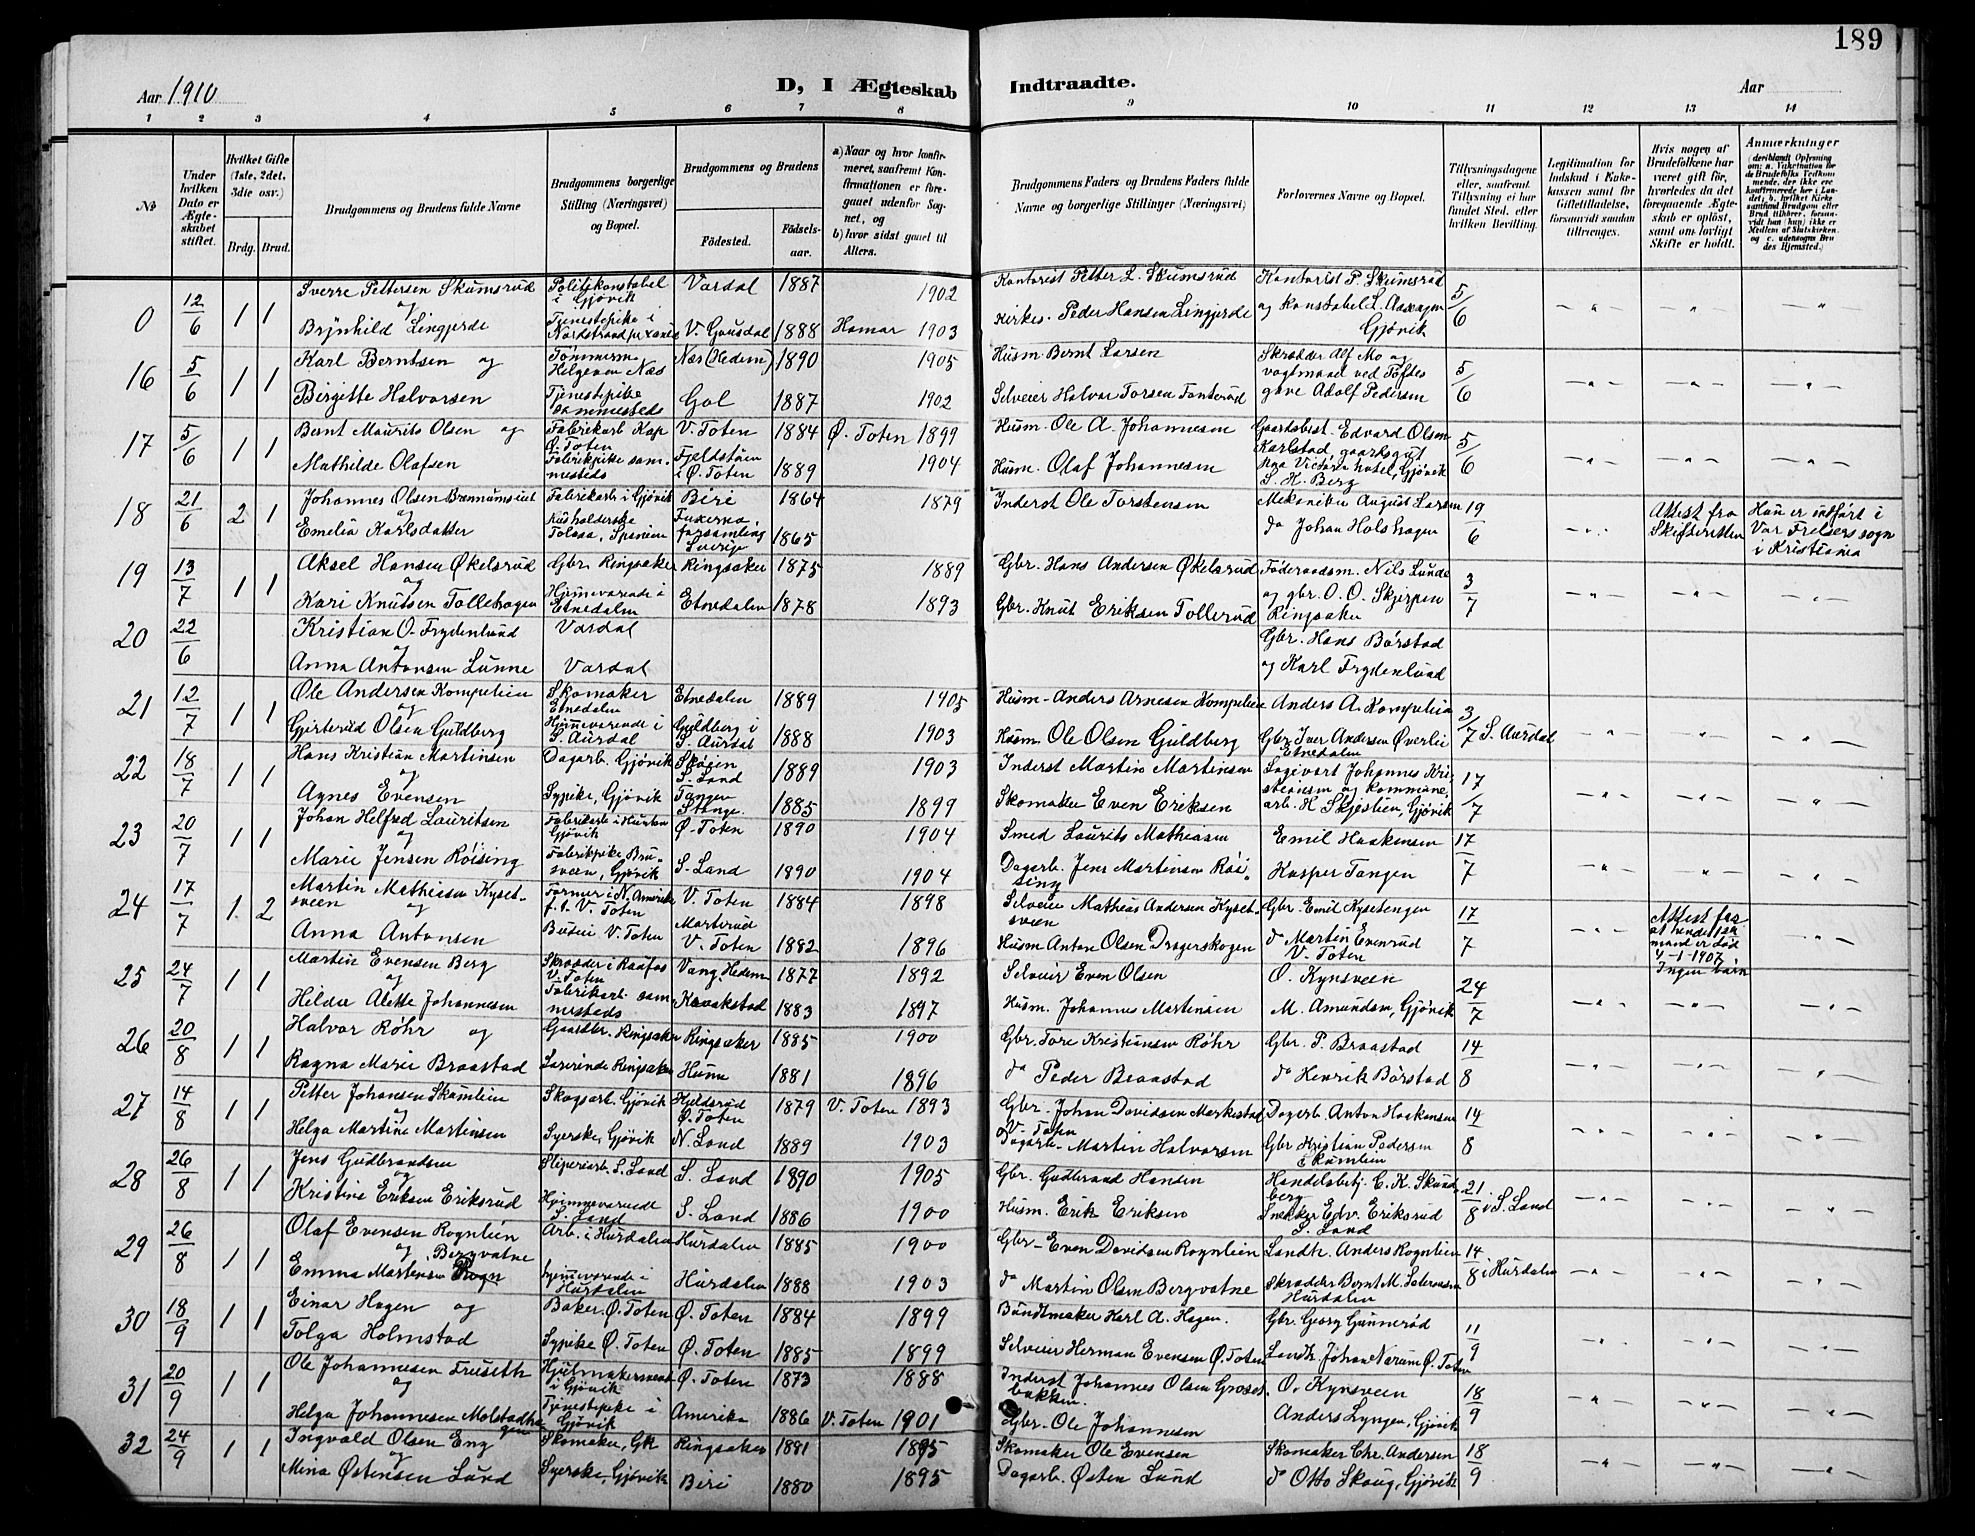 189
Aar 1910
D, I Ægteskab Indtraadte.
Aar
1 2 3 4 5 6 7 8 9 10 11 12 13 14
№
Under hvilken Dato er Ægteskabet stiftet.
Hvilket Gifte (1ste, 2det, 3die osv.)
Brdg. Brud.
Brudgommens og Brudens fulde Navne
Brudgommens borgerlige Stilling (Næringsvei) og Bopæl.
Brudgommens og Brudens
Fødested.
Fødsels-aar.
a) Naar og hvor konfirmeret, saafremt Konfirmationen er foregaaet udenfor Sognet, og
b) hvor sidst gaaet til Alters.
Brudgommens Faders og Brudens Faders fulde Navne og borgerlige Stillinger (Næringsvei)
Forlovernes Navne og Bopæl.
Tillysningsdagene eller, saafremt Tillysning ei har fundet Sted, er hvilken Bevilling.
Legitimation for Indskud i Enkekassen samt for Giftetilladelse, forsaavidt saadan tiltrænges.
Hvis nogen af Brudefolkene har været gift før, hvorledes da det foregaaende Ægteskab er opløst, samt om lovligt Skifte er holdt.
Anmerkninger
0 12/6 1 1 Sverre Pettersen Skumsrud Politikonstabel i Gjøvik Vardal 1887 1902 Kontorist Petter L. Skumsrud Kontorist P. Skumsrud 5/6
og Brynhild Lingjerde Tjenestepike i V. Gausdal 1888 Hamar 1903 Kirkes. Peder Hansen Lingjerde og Konstabel L. Gjøvik
16 5/6 1 1 Karl Berntsen og Tømmerm. Helgøen Næs Næs (Hedem) 1890 1905 Husm. Bernt Larsen Skrædder Alf Mo og 5/6
Birgitte Halvorsen Tjenestepike sammesteds Gol 1887 1902 Selveier Halvor Torsen vogtmand ved Toftes gave Adolf Pedersen
17 5/6 1 1 Bernt Maurits Olsen og Fabrikarb Kap Ø. Toten V. Toten 1884 Ø. Toten 1899 Husm. Ole A. Johannesen Gaardsbest. Edvard Olsen Karlstad, gaardsgut 5/6
Mathilde Olafsen Fabrikpike sammesteds i Ø. Toten 1889 1904 Husm. Olaf Johannesen Victoria hotel, Gjøvik S. H. Berg
18 21/6 2 1 Johannes Olsen Fabrikarb i Gjøvik Biri 1864 1879 Inderst Ole Torstensen Mekaniker August Larsen 19/6 Attest fra Skifteretten Hun er indført i
og Emelia Karlsdatter Husholderske Tolosa, Spanien forsamling Sverige 1865 do Johan Holshagen Vor Frelsers sogn i Kristiania
19 13/7 1 1 Aksel Hansen Økelsrud Gbr. Ringsaker Ringsaker 1875 1889 Gbr. Hans Andersen Økelsrud Føderaadsm. Nils Lunde 3/7
og Kari Knutsen Tollehagen Hjemmeværende i Etnedalen Etnedalen 1878 1893 Gbr. Knut Eriksen Tollerud og gbr. O. O. Skjerpen Ringsaker
20 22/6 Kristian O. Frydenlund Vardal Gbr. Hans Børstad
og Anna Antonsen Lunne Vardal og Karl Frydenlund
21 12/7 1 1 Ole Andersen Kompelien Skomaker Etnedalen Etnedalen 1889 1905 Husm. Anders Arnesen Kompelien Anders A. Kompelien 3/7 S. Aurdal
og Gjertrud Olsen Guldberg Hjemmeværende i S. Aurdal Guldberg i S. Aurdal 1888 1903 Husm. Ole Olsen Guldberg Gbr. Iver Andersen Øverlie Etnedalen
22 18/7 1 1 Hans Kristian Martinsen Dagarb. Gjøvik Skøien S. Land 1889 1903 Inderst Martin Martinsen Johannes Kristiansen og kommune- 17/7
og Agnes Evensen Sypike, Gjøvik Tangen Stange 1885 1899 Skomaker Even Eriksen arb. H. Skjøstien, Gjøvik
23 20/7 1 1 Johan Helfred Lauritsen Fabrikarb. i Hunton Gjøvik Ø. Toten 1890 1904 Smed Laurits Mathiasen Emil Haakensen 17/7
og Marie Jensen Røising Fabrikpike, Brusveen, Gjøvik S. Land 1890 1904 Dagarb. Jens Martinsen Røising Kasper Tangen
24 17/7 1 2 Martin Mathiasen Kysetsveen Farmer i N. Amerika f. t. V. Toten V. Toten 1884 1898 Selveier Mathias Andersen Kysetsveen Gbr. Emil Kysetengen 17/7 Attest for at hendes 1ste mand er død 4-1-1907 Ingen børn
og Anna Antonsen Budeie V. Toten V. Toten 1882 1896 Husm Anton Olsen Dragerskogen do Martin Evenrud V. Toten
25 24/7 1 1 Martin Evensen Berg Skrædder i Raufos V. Toten Vang, Hedem 1877 1892 Selveier Even Olsen O. Kynsveen 24/7
og Hilda Alette Johannesen Fabrikarb. sammesteds Kraakstad 1883 1897 Husm. Johannes Martinsen M. Amundsen, Gjøvik
26 20/8 1 1 Halvor Røhr og Gaardbr. Ringsaker Ringsaker 1885 1900 Gbr. Tore Kristiansen Røhr Gbr. P. Braastad 14/8
Ragna Marie Braastad Lærerinde Ringsaker Hunn 1881 1896 do Peder Braastad do Henrik Børstad
27 14/8 1 1 Petter Johansen Skumlien Skogsarb. Gjøvik Ø. Toten 1879 V. Toten 1893 Gbr. Johan Davidsen Markestad V. Toten Dagarb. Anton Haakensen 14/8
og Helga Martine Martinsen Syerske, Gjøvik N. Land 1889 1903 Dagarb. Martin Halvorsen Gbr Kristian Pedersen Skumlien
28 26/8 1 1 Jens Gudbrandsen Sliperiarb. S. Land S. Land 1890 1905 Gbr. Gudbrand Hansen Handelsbetj. C. K. Skundberg 21/8 i S. Land
og Kristine Eriksen Eriksrud Hjemmeværende S. Land S. Land 1886 1900 Husm. Erik Eriksen Snekker Edv. Eriksrud S. Land
29 26/8 1 1 Olaf Evensen Rognlien Arb. i Hurdalen Hurdalen 1885 1900 Gbr. Even Davidsen Rognlien Landh. Anders Rognlien 14/8 i Hurdalen
og Emma Martinsen Bergvatne Hjemmeværende i Hurdalen Hurdalen 1888 1903 do Martin Olsen Bergvatne Skrædder Bernt M. Hurdalen
30 18/9 1 1 Einar Hagen og Baker. Ø. Toten Ø. Toten 1884 1899 Buntmaker Karl A. Hagen. Gbr. Georg Gunnerød 11/9
Tolga Holmstad Sypike Ø. Toten Ø. Toten 1885 1899 Selveier Herman Evensen Ø. Toten Landh. Johan Narum Ø. Toten
31 20/9 1 1 Ole Johannesen Fruseth Hjulmakersvend i Gjøvik Ø. Toten 1873 1888 Inderst Johannes Olsen Grosetbakken. O. Kynsveen 18/9
og Helga Johannesen Molstadhagen Tjenestepike i Gjøvik Amerika 1886 V. Toten 1901 Gbr. Ole Johannesen Anders Lyngen, Gjøvik
32 24/9 1 1 Ingvald Olsen Eng Skomaker, Gk Ringsaker 1881 1895 Skomaker Ole Evensen Skomaker Chr. Andersen 18/9
og Mina Østensen Lund Syerske, Gjøvik Biri 1880 1895 Dagarb. Østen Lund do Otto Skaug, Gjøvik